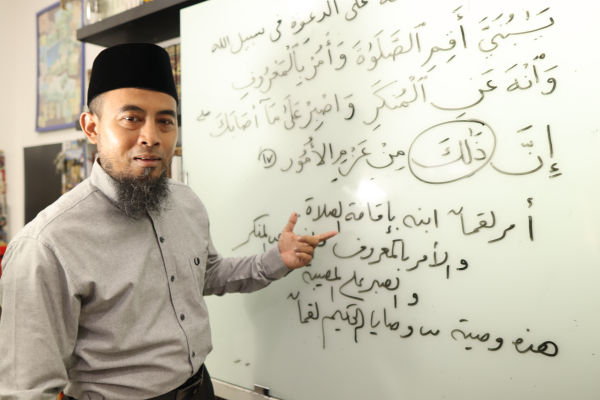 على الدعوة في سبيل الله
يَـٰبُنَيَّ أَقِمِ ٱلصَّلَوٰةَ وَأْمُرْ بِٱلْمَعْرُوفِ
وَٱنْهَ عَنِ ٱلْمُنكَرِ وَٱصْبِرْ عَلَىٰ مَآ أَصَابَكَ
إِنَّ ذَٰلِكَ مِنْ عَزْمِ الأُمُورِ ١٧
أمر لقمان ابنه بإقامة لصلاة
والأمر بالمعروف المنكر
والصبر على المصيبة
هذه وصية من وصايا الحكيم لقمان